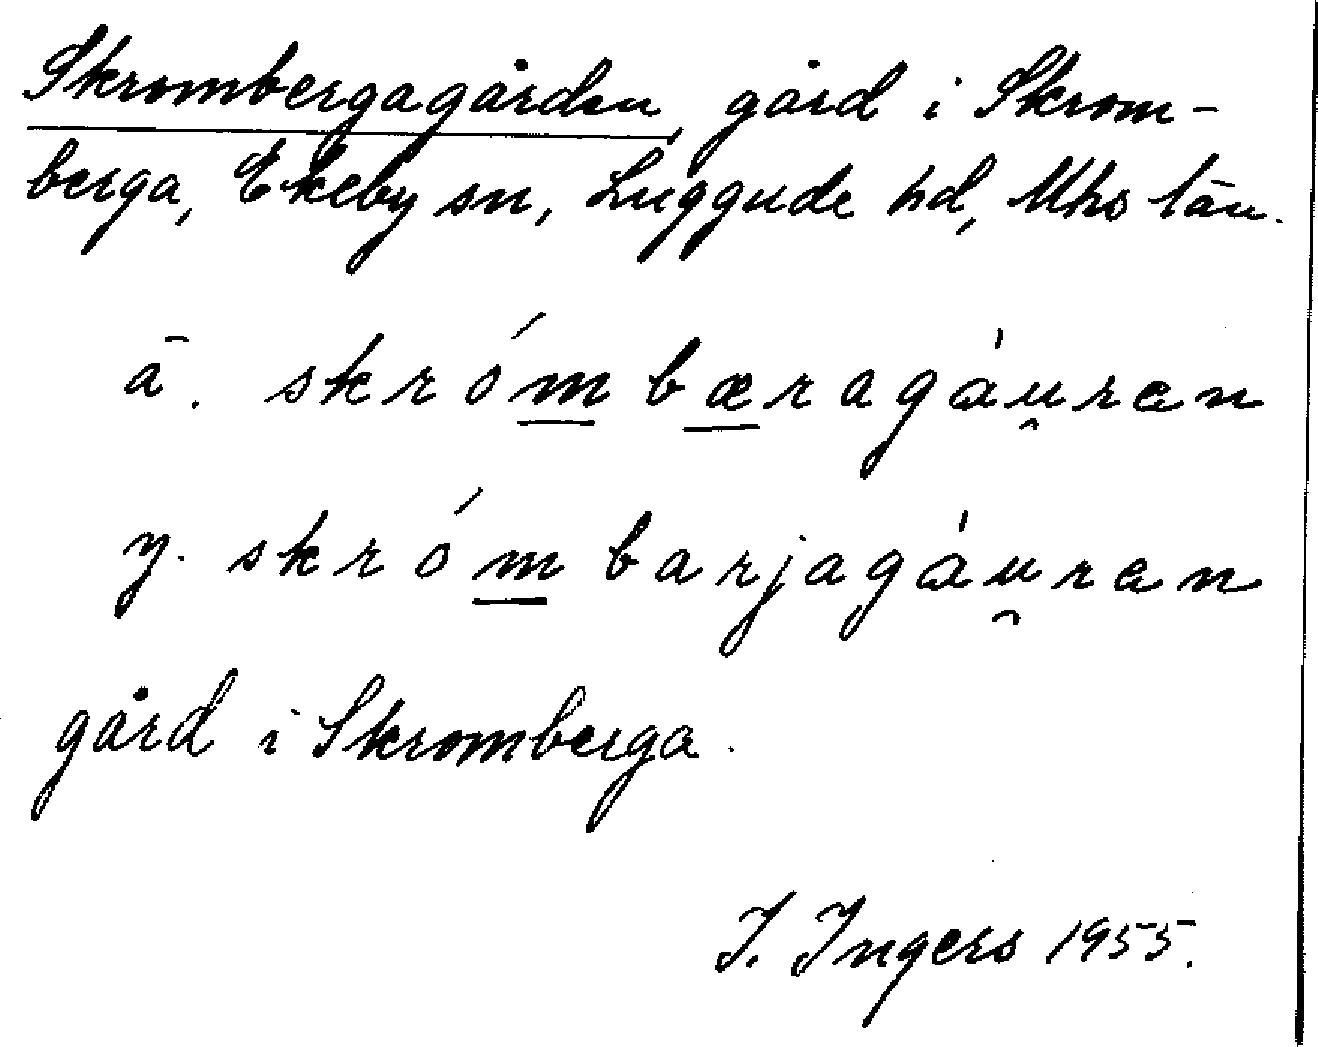 Skrombergagården, gård i Skrom-
berga, Ekeby sn, Luggude hd, Mhs län.
ä. skróm̲bæ̲ragáu̯ran
y. skróm̲barjagáu̯ran
gård i Skromberga.
I. Ingers 1955.